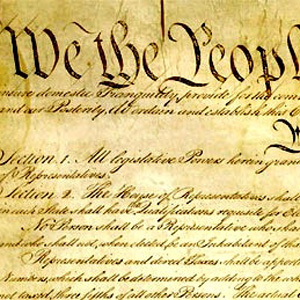 We the People
insure domestic Tranquility, provide for the com
and our Posterity, do ordain and establish this C
Section. 1. All legislative Powers herein gran
of Representatives.
Section. 2. The House of Representatives shal
in each State shall have the Qualifications requisite for E
No Person shall be a Representative who shal
and who shall not, when elected, be an Inhabitant of tha
Representatives and direct Taxes shall be appor
Numbers, which shall be determined by adding to the
not taxed, three fifths of all other Persons. The actual